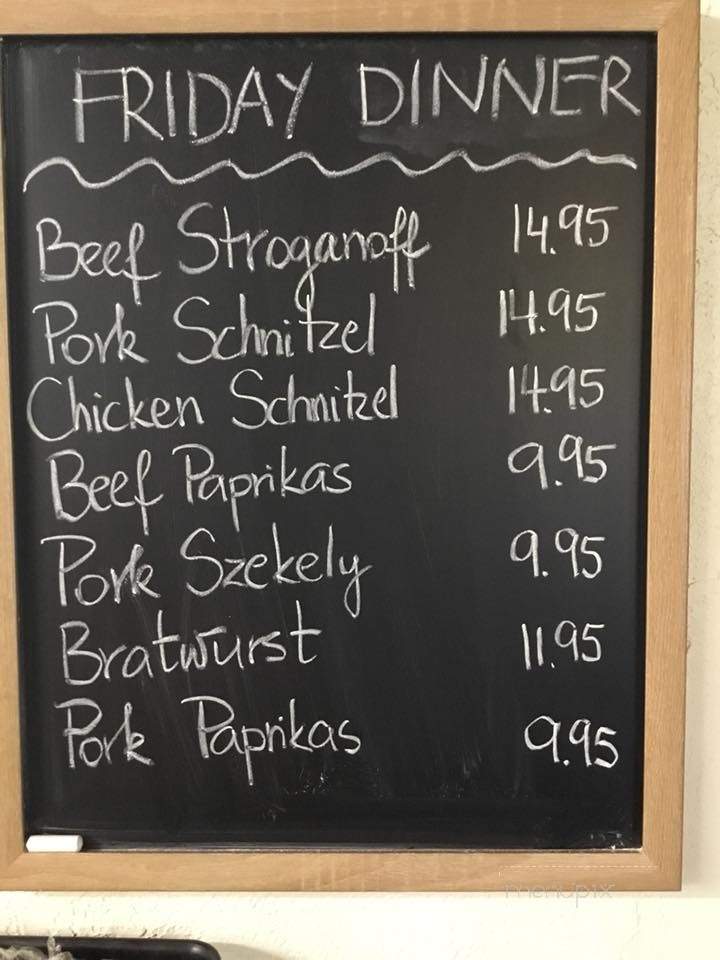 FRIDAY DINNER
Beef Stroganoff 14.95
Pork Schnitzel 14.95
Chicken Schnitzel 14.95
Beef Paprikas 9.95
Pork Szekely 9.95
Bratwurst 11.95
Pork Paprikas 9.95
menupix